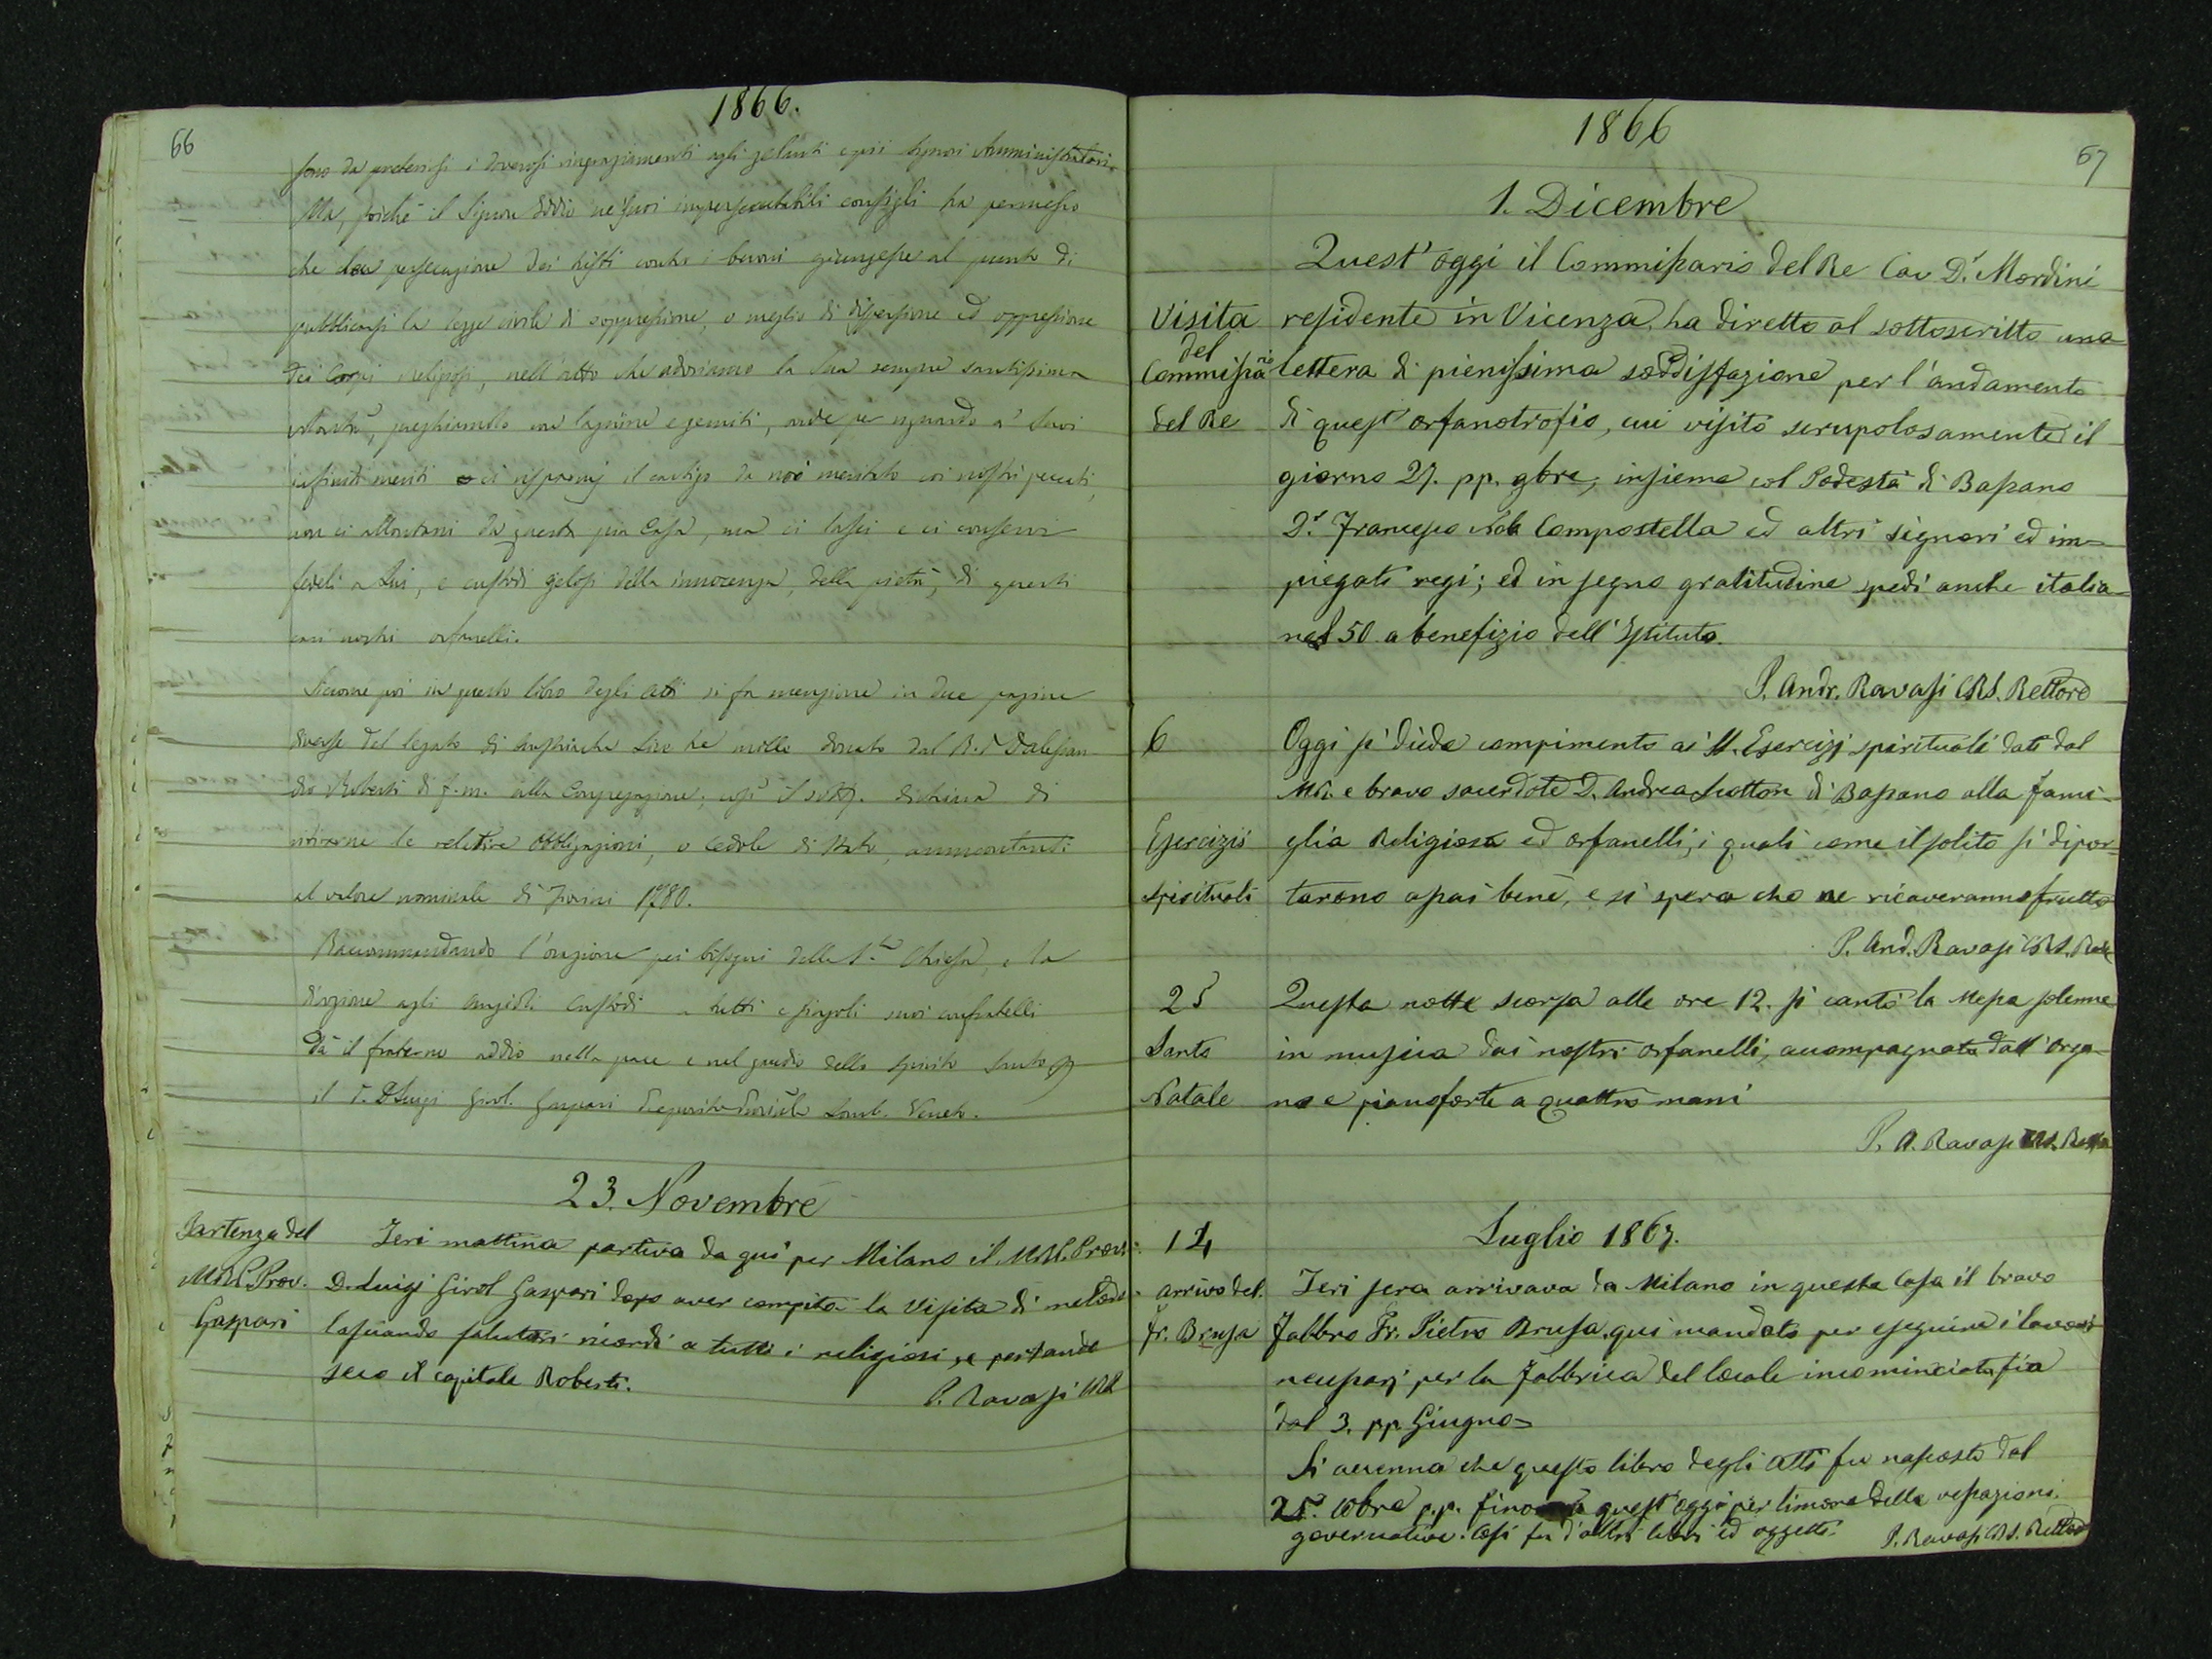 66
1866.
sono da preterirsi i doverosi ringraziamenti agli zelanti e pii Signori Amministratori.
Ma, poichè il Signore Iddio ne' suoi imperscrutabili consigli ha permesso
che la persecuzione dei tristi contro i buoni giungesse al punto di
pubblicarsi la legge civile di soppressione, o meglio di dispersione ed oppressione
dei Corpi religiosi, nell'atto che adoriamo la Sua sempre santissima
volontà, preghiamolo con lagrime e gemiti, onde per riguardo a' Suoi
infiniti meriti ci risparmj il castigo da noi meritato coi nostri peccati,
non ci allontani da questa pia Casa, ma ci lasci e ci conservi
fedeli a Lui, e custodi gelosi della innocenza, della pietà, di questi
cari nostri orfanelli.
Siccome poi in questo libro degli Atti si fa menzione in due pagine
diverse del legato di Austriache Lire tre mille donato dal
Roberti di f. m. alla Congregazione; così il sott. dichiara di
le relative Obbligazioni, o Cedole di Stato, ammontanti
al valore nominale di Fiorini 1780.
Raccomandando l'orazione pei bisogni della S.ta Chiesa, e la
divozione agli Angioli Custodi a tutti e singoli suoi confratelli
dà il fraterno addio nella pace e nel gaudio dello Spirito Santo
il P. D. Luigi Girol. Gaspari Preposito Prov.le Lomb. Veneto.
23. Novembre
Partenza del
M.R.P. Prov.
Gaspari
Ieri mattina partiva da qui per Milano il M.R.P. Prov.
D. Luigi Girol Gaspari dopo aver compita la Visita di metodo
lasciando salutari ricordi a tutti i religiosi, e portando
seco il capitale Roberti.
P. Ravasi CRS
1866
67
1. Dicembre
Quest'oggi il Commissario del Re Cav D.r Mordini
Visita
del
Commissario
del Re
residente in Vicenza, ha diretto al sottoscritto una
lettera di pienissima soddisfazione per l'andamento
di quest'orfanotrofio, cui visitò scrupolosamente il
giorno 27. pp. 9bre, insieme col Podestà di Bassano
D.r Francesco Nob Compostella ed altri signori ed im=
piegati regi; ed in segno gratitudine spedì anche italia=
ne £ 50 a benefizio dell'Istituto.
P. Andr. Ravasi CRS. Rettore
6
Esercizii
spirituali
Oggi si diede compimento ai SS. Esercizj spirituali dati dal
M.R. e bravo sacerdote D. Andrea Scotton di Bassano alla fami=
glia Religiosa ed orfanelli, i quali come il solito si dipor=
tarono assai bene, e si spera che ne ricaveranno frutto
P. And. Ravasi CRS. Rett
25
Santo
Natale
Questa notte scorsa alle ore 12. si cantò la Messa solenne
in musica dai nostri orfanelli, accompagnata dall'orga=
no e pianoforte a quattro mani
P. A. Ravasi CRS. Rett
Luglio 1867.
14
arrivo del
Fr. Brusa
Ieri sera arrivava da Milano in questa Casa il bravo
fabbro Fr. Pietro Brusa, qui mandato per eseguire i lavori
necessarj per la fabbrica del locale incominciata fia
dal 3. pp Giugno=
Si accenna che questo libro degli Atti fu nascosto dal
25. Xbre p.p. fino a quest'oggi per timore delle vessazioni
governative. Così fu d'altri libri ed oggetti.
P. Ravasi CRS. Rettore